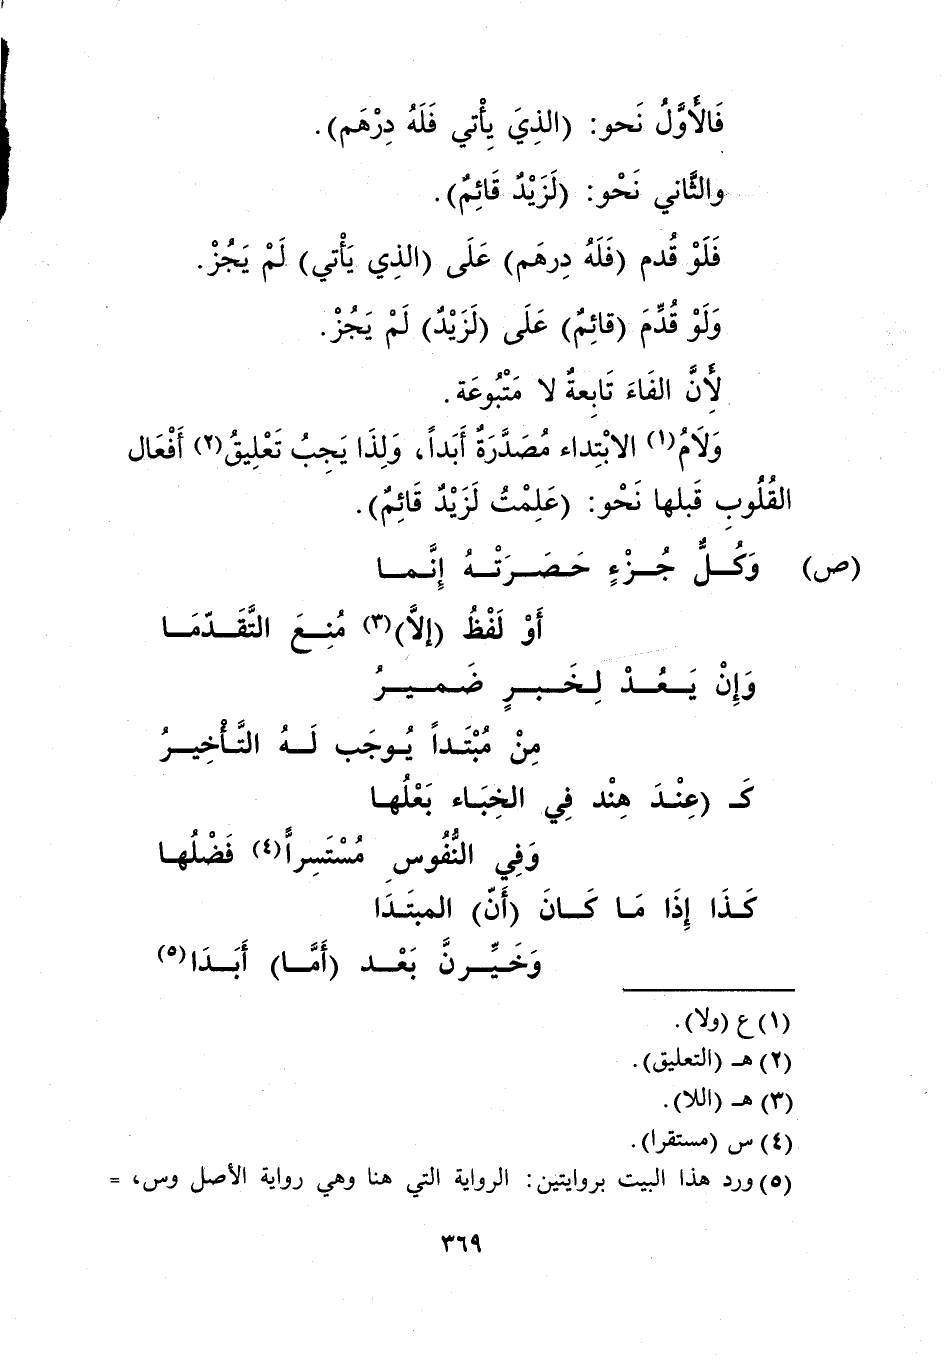 فَالأَوَّلُ نَحو: (الذِيَ يأْتي فَلَهُ دِرْهَم).
والثَّاني نَحْو: (لَزَيْدٌ قَائِمٌ).
فَلَوْ قُدم (فَلَهُ دِرهَم) عَلَى (الذِي يَأْتي) لَمْ يَجُزْ.
وَلَوْ قُدِّمَ (قائِمٌ) عَلَى (لَزَيْدٌ) لَمْ يَجُزْ.
لِأَنَّ الفَاءَ تَابِعةٌ لا مَتْبُوعَة.
وَلَامُ(١) الابْتِداء مُصَدَّرَةٌ أَبَداً، وَلِذَا يَجِبُ تَعْلِيقُ(٢) أَفْعَال
القُلُوبِ قَبلها نَحْو: (عَلِمْتُ لَزَيْدٌ قَائِمٌ).
(ص) وَكُلُّ جُزْءٍ حَصَرَتْهُ إِنَّما
أَوْ لَفْظُ (إلاَّ)(٣) مُنِعَ التَّقَدّمَا
وَإِنْ يَعُدْ لِخَبرٍ ضَميرُ
مِنْ مُبْتَداً يُوجَب لَهُ التَّأْخِيرُ
كَـ (عِنْدَ هِنْد فِي الخِبَاء بَعْلُها
وَفِي النُّفُوسِ مُسْتَسِراًّ(٤) فَضْلُها
كَذَا إِذَا مَا كَانَ (أَنّ) المبتَدَا
وَخَيِّرنَّ بَعْد (أَمَّا) أَبَدَا(٥)
(١) ع (ولا).
(٢) هـ (التعليق).
(٣) هـ (اللا).
(٤) س (مستقرا).
(٥) ورد هذا البيت بروايتين: الرواية التي هنا وهي رواية الأصل وس، =
٣٦٩